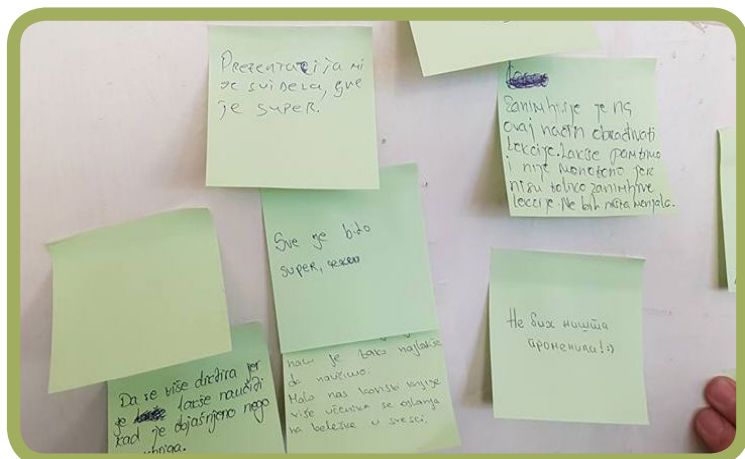 Prezentacija mi
se svidela, sve
je super.
Zanimljivije je na
ovaj način obrađivati
lekcije. Lakše pamtimo
i nije monotono, jer
nisu toliko zanimljive
lekcije. Ne bih ništa menjala.
Sve je bilo
super,
Не бих ништа
променила!:)
Da se više diktira jer
je lakše naučiti
kad je objašnjeno nego
knjiga.
nam je tako najlakše
da naučimo.
Malo nas koristi knjige
više učenika se oslanja
na beleške u svesci.